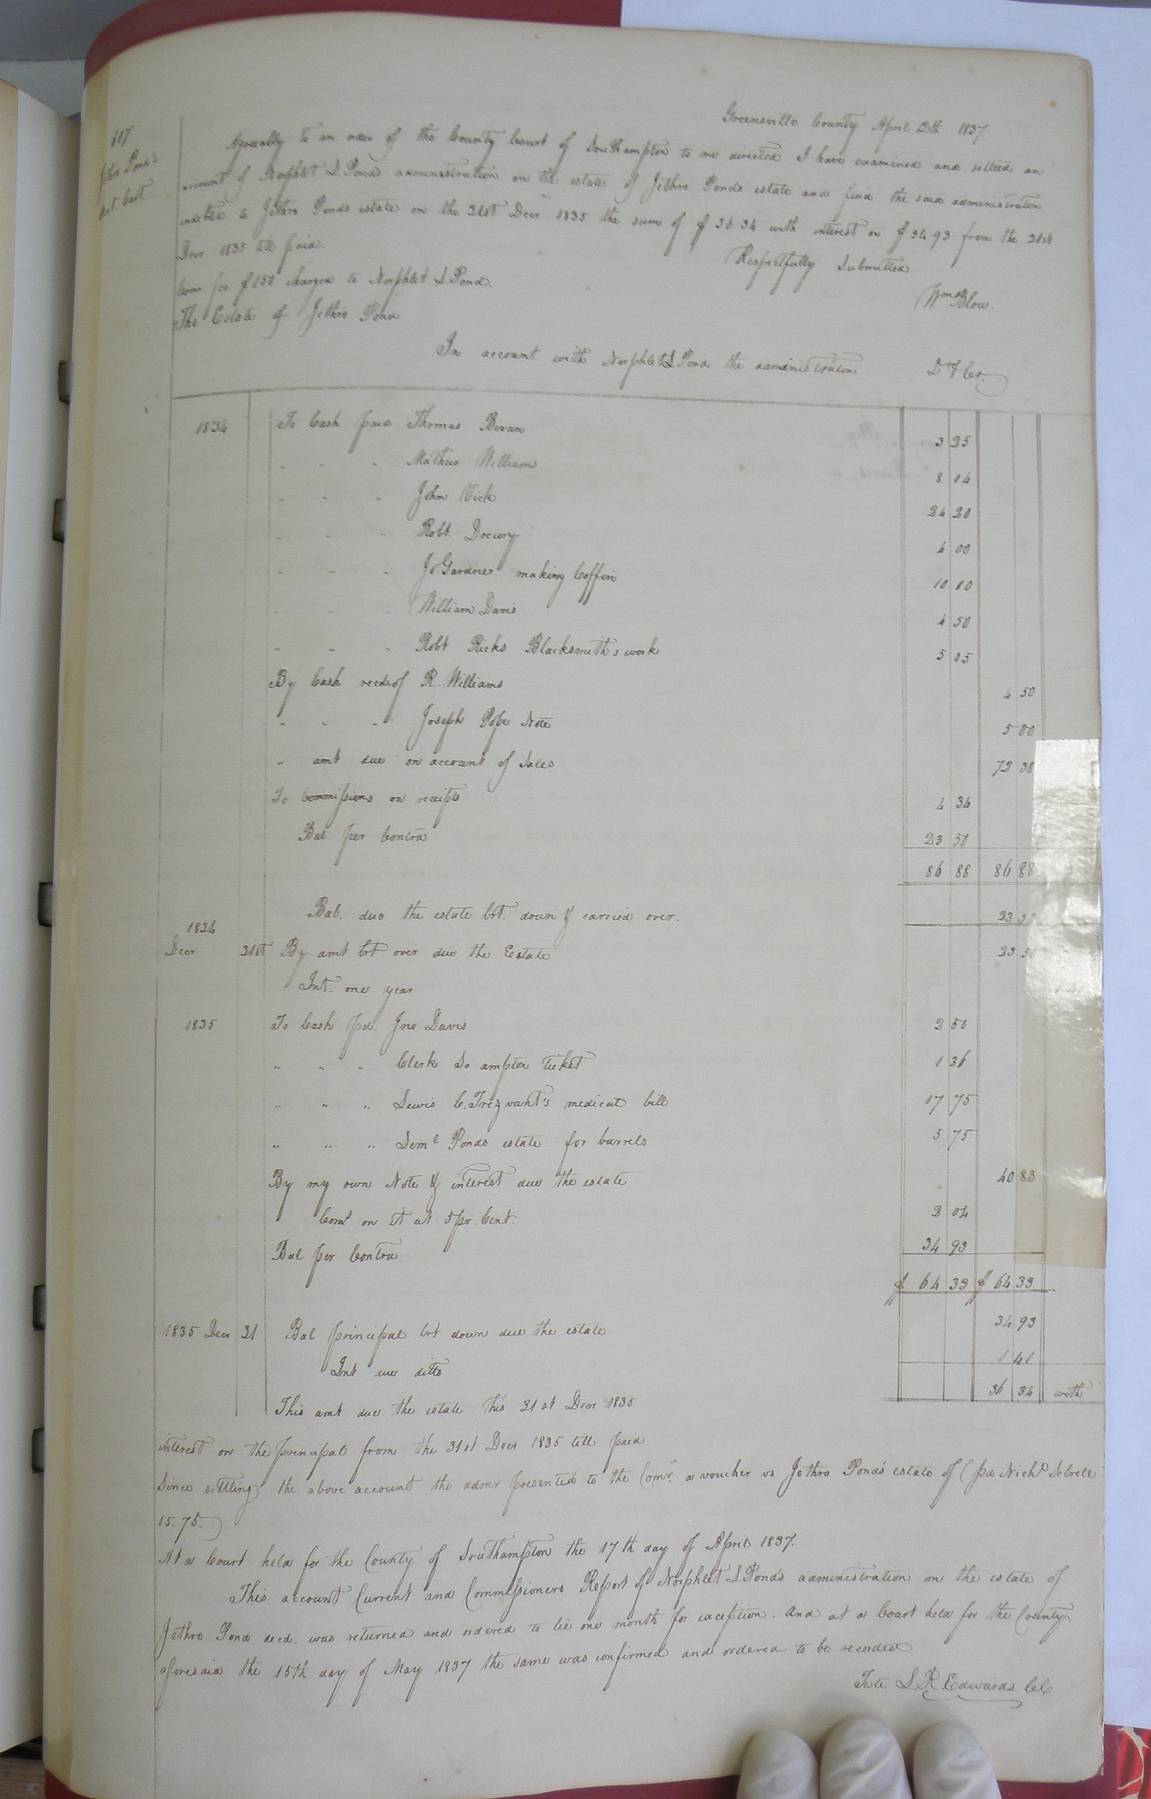 617
Jethro Pond's
Act Curt
Greensville County April 12th 1837
Agreeably to an order of the County Court of Southampton to me directed I have examined and settled an
account of Norphlet S Ponds administration on the estate of Jethro Ponds estate and find the said administrator
indebted to Jethro Ponds estate on the 31st Decr 1835 the sum of $ 36.34 with interest on $ 34.93 from the 31st
Decr 1835 till paid.
Respectfully Submitted
Com fee $1 50 charged to Norphlet S Pond.
Wm Blow.
The Estate of Jethro Pond
In account with Norphlet S Pond the administrator Dr & Cr.
1834 To Cash paid Thomas Bevan 3 25
" " " Mathew Williams 8 04
" " " John Vick 24 20
" " " Robt. Drewry 4 00
" " " Jo Gardner making Coffin 10 10
" " " William Davis 4 50
" " " Robt Ricks Blacksmith's work 5 05
By Cash recd of R. Williams 4 50
" " " Joseph Pope Note 5 00
" amt due on account of Sales 72 38
To Commissions on receipts 4 34
Bal per Contra 23 50
86 88 86 88
Bal. due the estate brt. down & carried over. 23 50
1834
Decr 31st By amt brt over due the Estate 23 50
Int. one year 1 41
1835 To Cash pd. Jno Davis 2 50
" " " Clerk So ampton ticket 1 36
" " " Lewis C. Trezvant's medical bill 17 75
" " " Seml Ponds estate for barrels 5 75
By my own Note & interest due the estate 40 83
Coms on it at 5 pr. Cent. 2 04
Bal per Contra 34 93
$ 64 33 $ 64 33
1835 Decr 31 Bal principal brt down due the estate 34 93
Int due ditto 1 41
This amt due the estate this 31st Decr 1835 36 34 with
interest on the principal from the 31st Decr 1835 till paid
Since settling the above account the admr presented to the Comr. a voucher vs Jethro Pond's estate of (pd Nichs Sebrell
15.75.)
At a Court held for the County of Southampton the 17th day of April 1837.
This account Current and Commissioners Report of Norphlet S Pond's administration on the estate of
Jethro Pond decd. was returned and ordered to lie one month for exception. And at a Court held for the County
aforesaid the 15th day of May 1837 the same was confirmed and ordered to be recorded
Teste L R Edwards CC